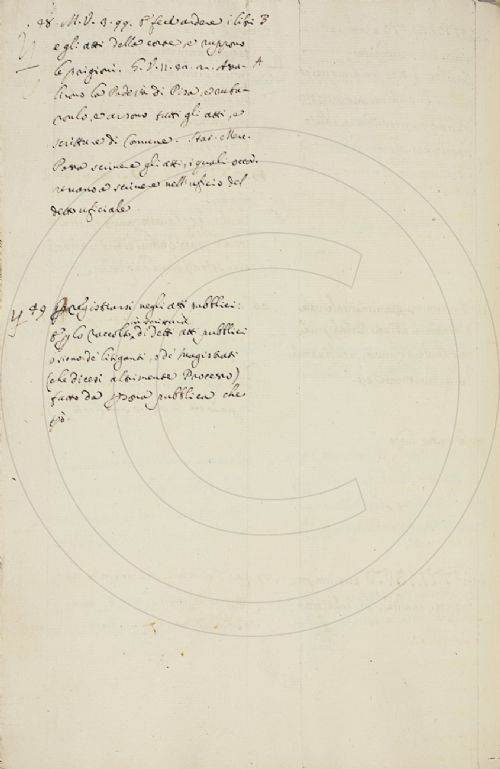 48. M. V. 3. 99. E fece ardere i libri 3
e gli atti della corte, e ruppono
le prigioni. G. V. 11. A
lirono la Podestà di Pisa, e
rono, e arsono tutti gli atti, e
scritture di Comune. Stat. Mer.
Possa scrivere gli atti, i quali occor-
reranno a scrivere nell'uficio del
detto uficiale
49 registrarsi negli atti pubblici:
originale
lo raccolto di detti atti pubblici
o sieno de' litiganti, o de' Magistrati
(che dicesi altrimente Processo)
fatto da persona pubblica che